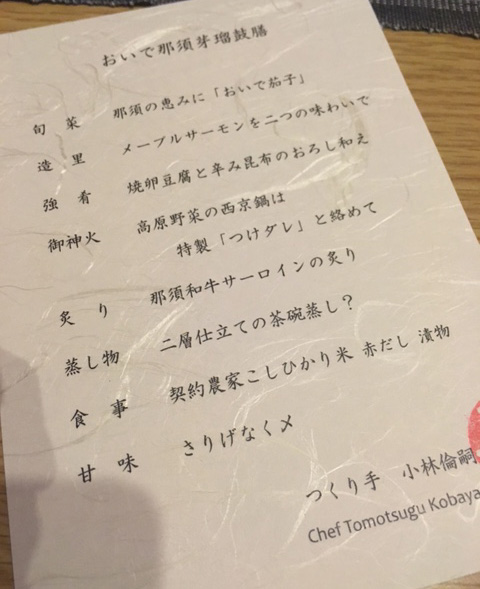 おいで那須芽瑠鼓膳
旬菜 那須の恵みに「おいで茄子」
造里 メープルサーモンを二つの味わいで
強肴 焼卵豆腐と辛み昆布のおろし和え
御神火 高原野菜の西京鍋は
特製「つけダレ」と絡めて
炙り 那須和牛サーロインの炙り
蒸し物 二層仕立ての茶碗蒸し?
食事 契約農家こしひかり米 赤だし 漬物
甘味 さりげなく〆
つくり手 小林倫嗣
Chef Tomotsugu Kobaya